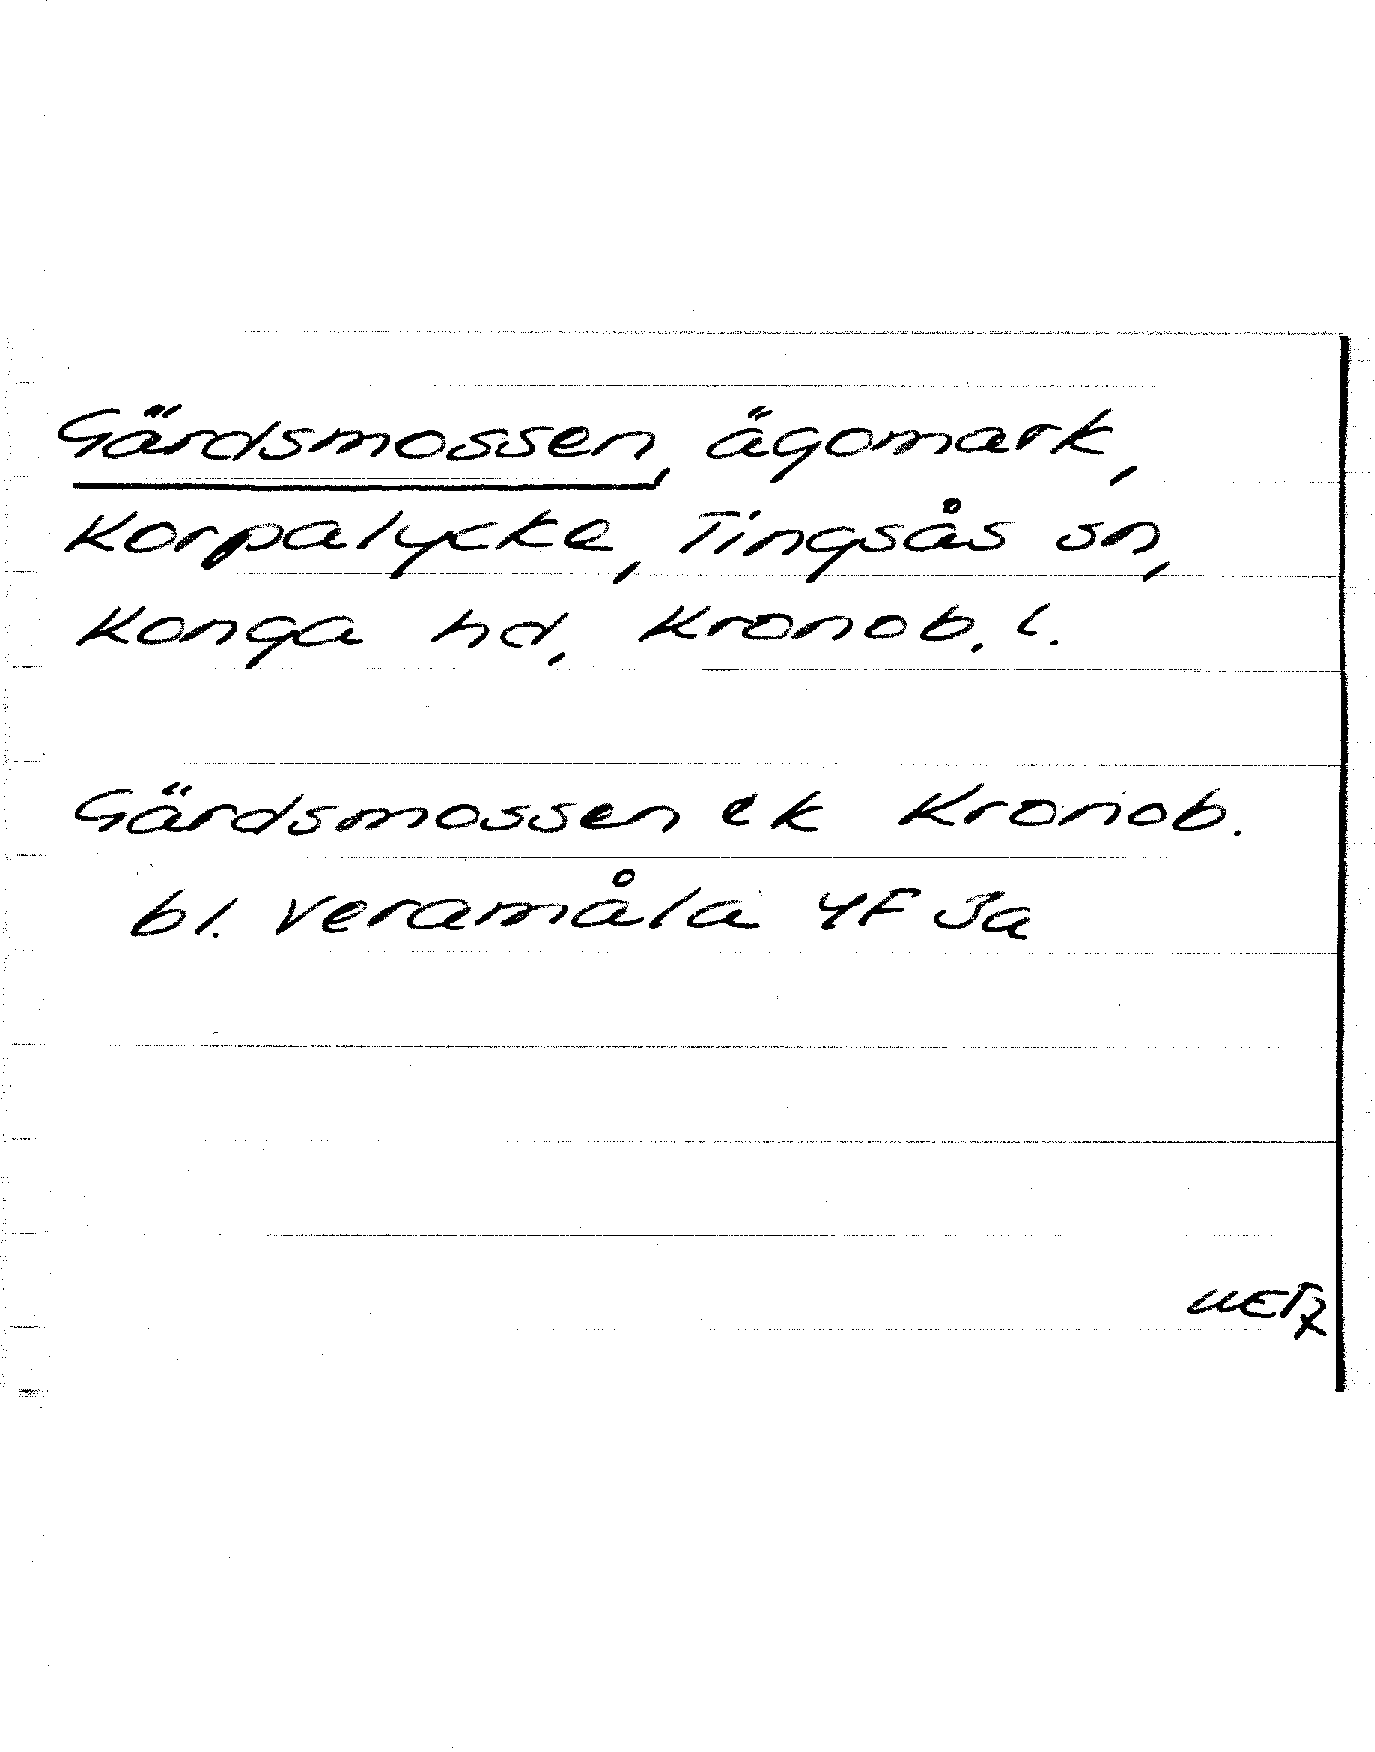 Gärdsmossen, ägomark,
Korpalycke, Tingsås sn,
Konga hd, Kronob. l.
Gärdsmossen ek Kronob.
bl. Veramåla 4F Ja